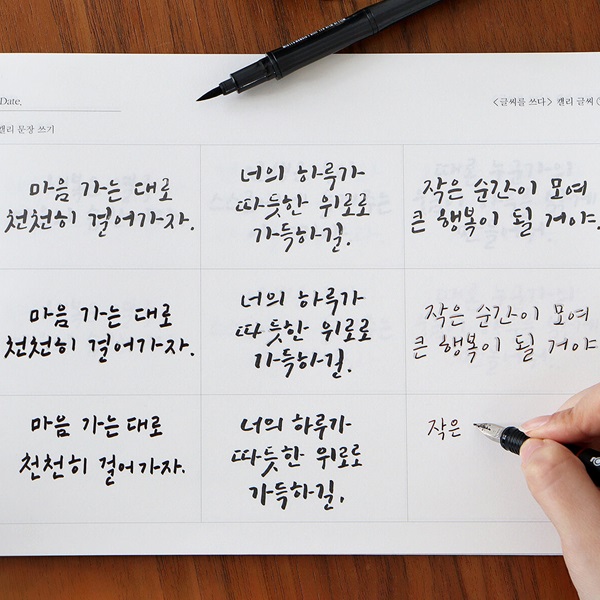 Date.
<글씨를 쓰다> 캘리 글씨
캘리 문장 쓰기
마음 가는 대로
천천히 걸어가자.
너의 하루가
따듯한 위로로
가득하길.
작은 순간이 모여
큰 행복이 될 거야.
마음 가는 대로
천천히 걸어가자.
너의 하루가
따듯한 위로로
가득하길.
작은 순간이 모여
큰 행복이 될 거야
마음 가는 대로
천천히 걸어가자.
너의 하루가
따듯한 위로로
가득하길.
작은